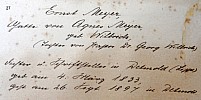 21
Ernst Meyer
Gatten von Agnes Meyer
geb Willrich
Tochter von Professor Dr Georg Willrich
Dichter u Schriftsteller in Detmold (Lippe)
geb am 4. März 1833
gest am 26 Sept. 1897 in Detmold